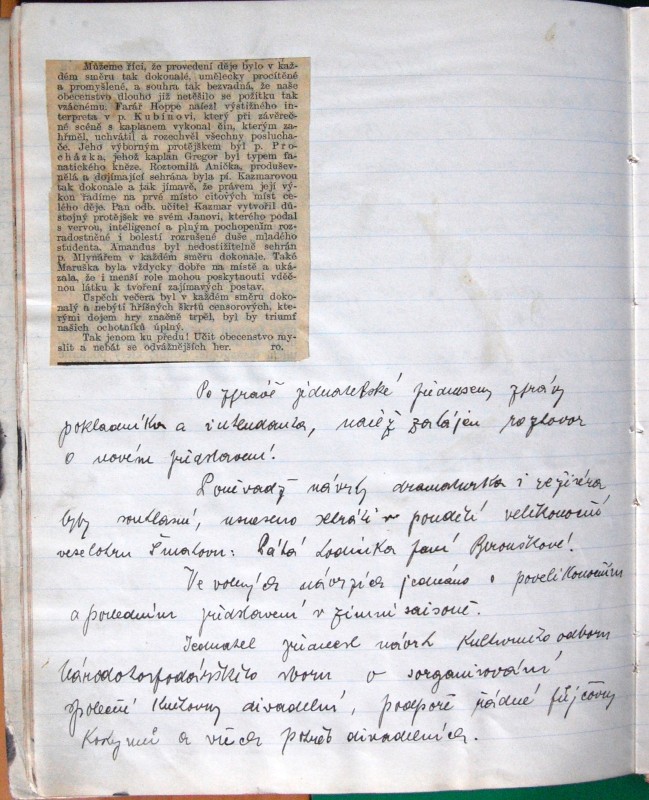 6
Můžeme říci, že provedení děje bylo v kaž-
dém směru tak dokonalé, umělecky procítěné
a promyšlené, a souhra tak bezvadná, že naše
obecenstvo dlouho již netěšilo se požitku tak
vzácnému. Farář Hoppe nalezl výstižného in-
terpreta v p. Kubínovi, který při závěreč-
né scéně s kaplanem vykonal čin, kterým za-
hřměl, uchvátil a rozechvěl všechny poslucha-
če. Jeho výborným protějškem byl p. Pro-
cházka, jehož kaplan Gregor byl typem fa-
natického kněze. Roztomilá Anička, produšev-
nělá a dojímající sehrána byla pí. Kazmarovou
tak dokonale a tak jímavě, že právem její vý-
kon řadíme na prvé místo citových míst ce-
lého děje. Pan odb. učitel Kazmar vytvořil dů-
stojný protějšek ve svém Janovi, kterého podal
s vervou, inteligencí a plným pochopením roz-
radostněné i bolestí rozrušené duše mladého
studenta. Amandus byl nedostižitelně sehrán
p. Mlynářem v každém směru dokonale. Také
Maruška byla vždycky dobře na místě a uká-
zala, že i menší role mohou poskytnouti vděč-
nou látku k tvoření zajímavých postav.
Úspěch večera byl v každém směru doko-
nalý a nebýti hříšných škrtů censorových, kte-
rými dojem hry značně trpěl, byl by triumf
našich ochotníků úplný.
Tak jenom ku předu! Učit obecenstvo my-
slit a nebát se odvážnějších her. ro.
Po zprávě jednatelské předneseny zprávy
pokladníka a intendanta, načež zahájen rozhovor
o novém představení.
Poněvadž návrhy dramaturga i režiséra
byly souhlasné, usneseno sehráti pondělí velikonoční
veselohru Šmatovu: Pátá Lodinka paní Brouškové.
Ve volných návrzích jednáno o povelikonočním
a posledním představení v zimní saisoně.
Jednatel přednesl návrh Kulturního odboru
Národohospodářského sboru o sorganisování
společné knihovny divadelní, podpoře řádné půjčovny
kostymů a všech potřeb divadelních.